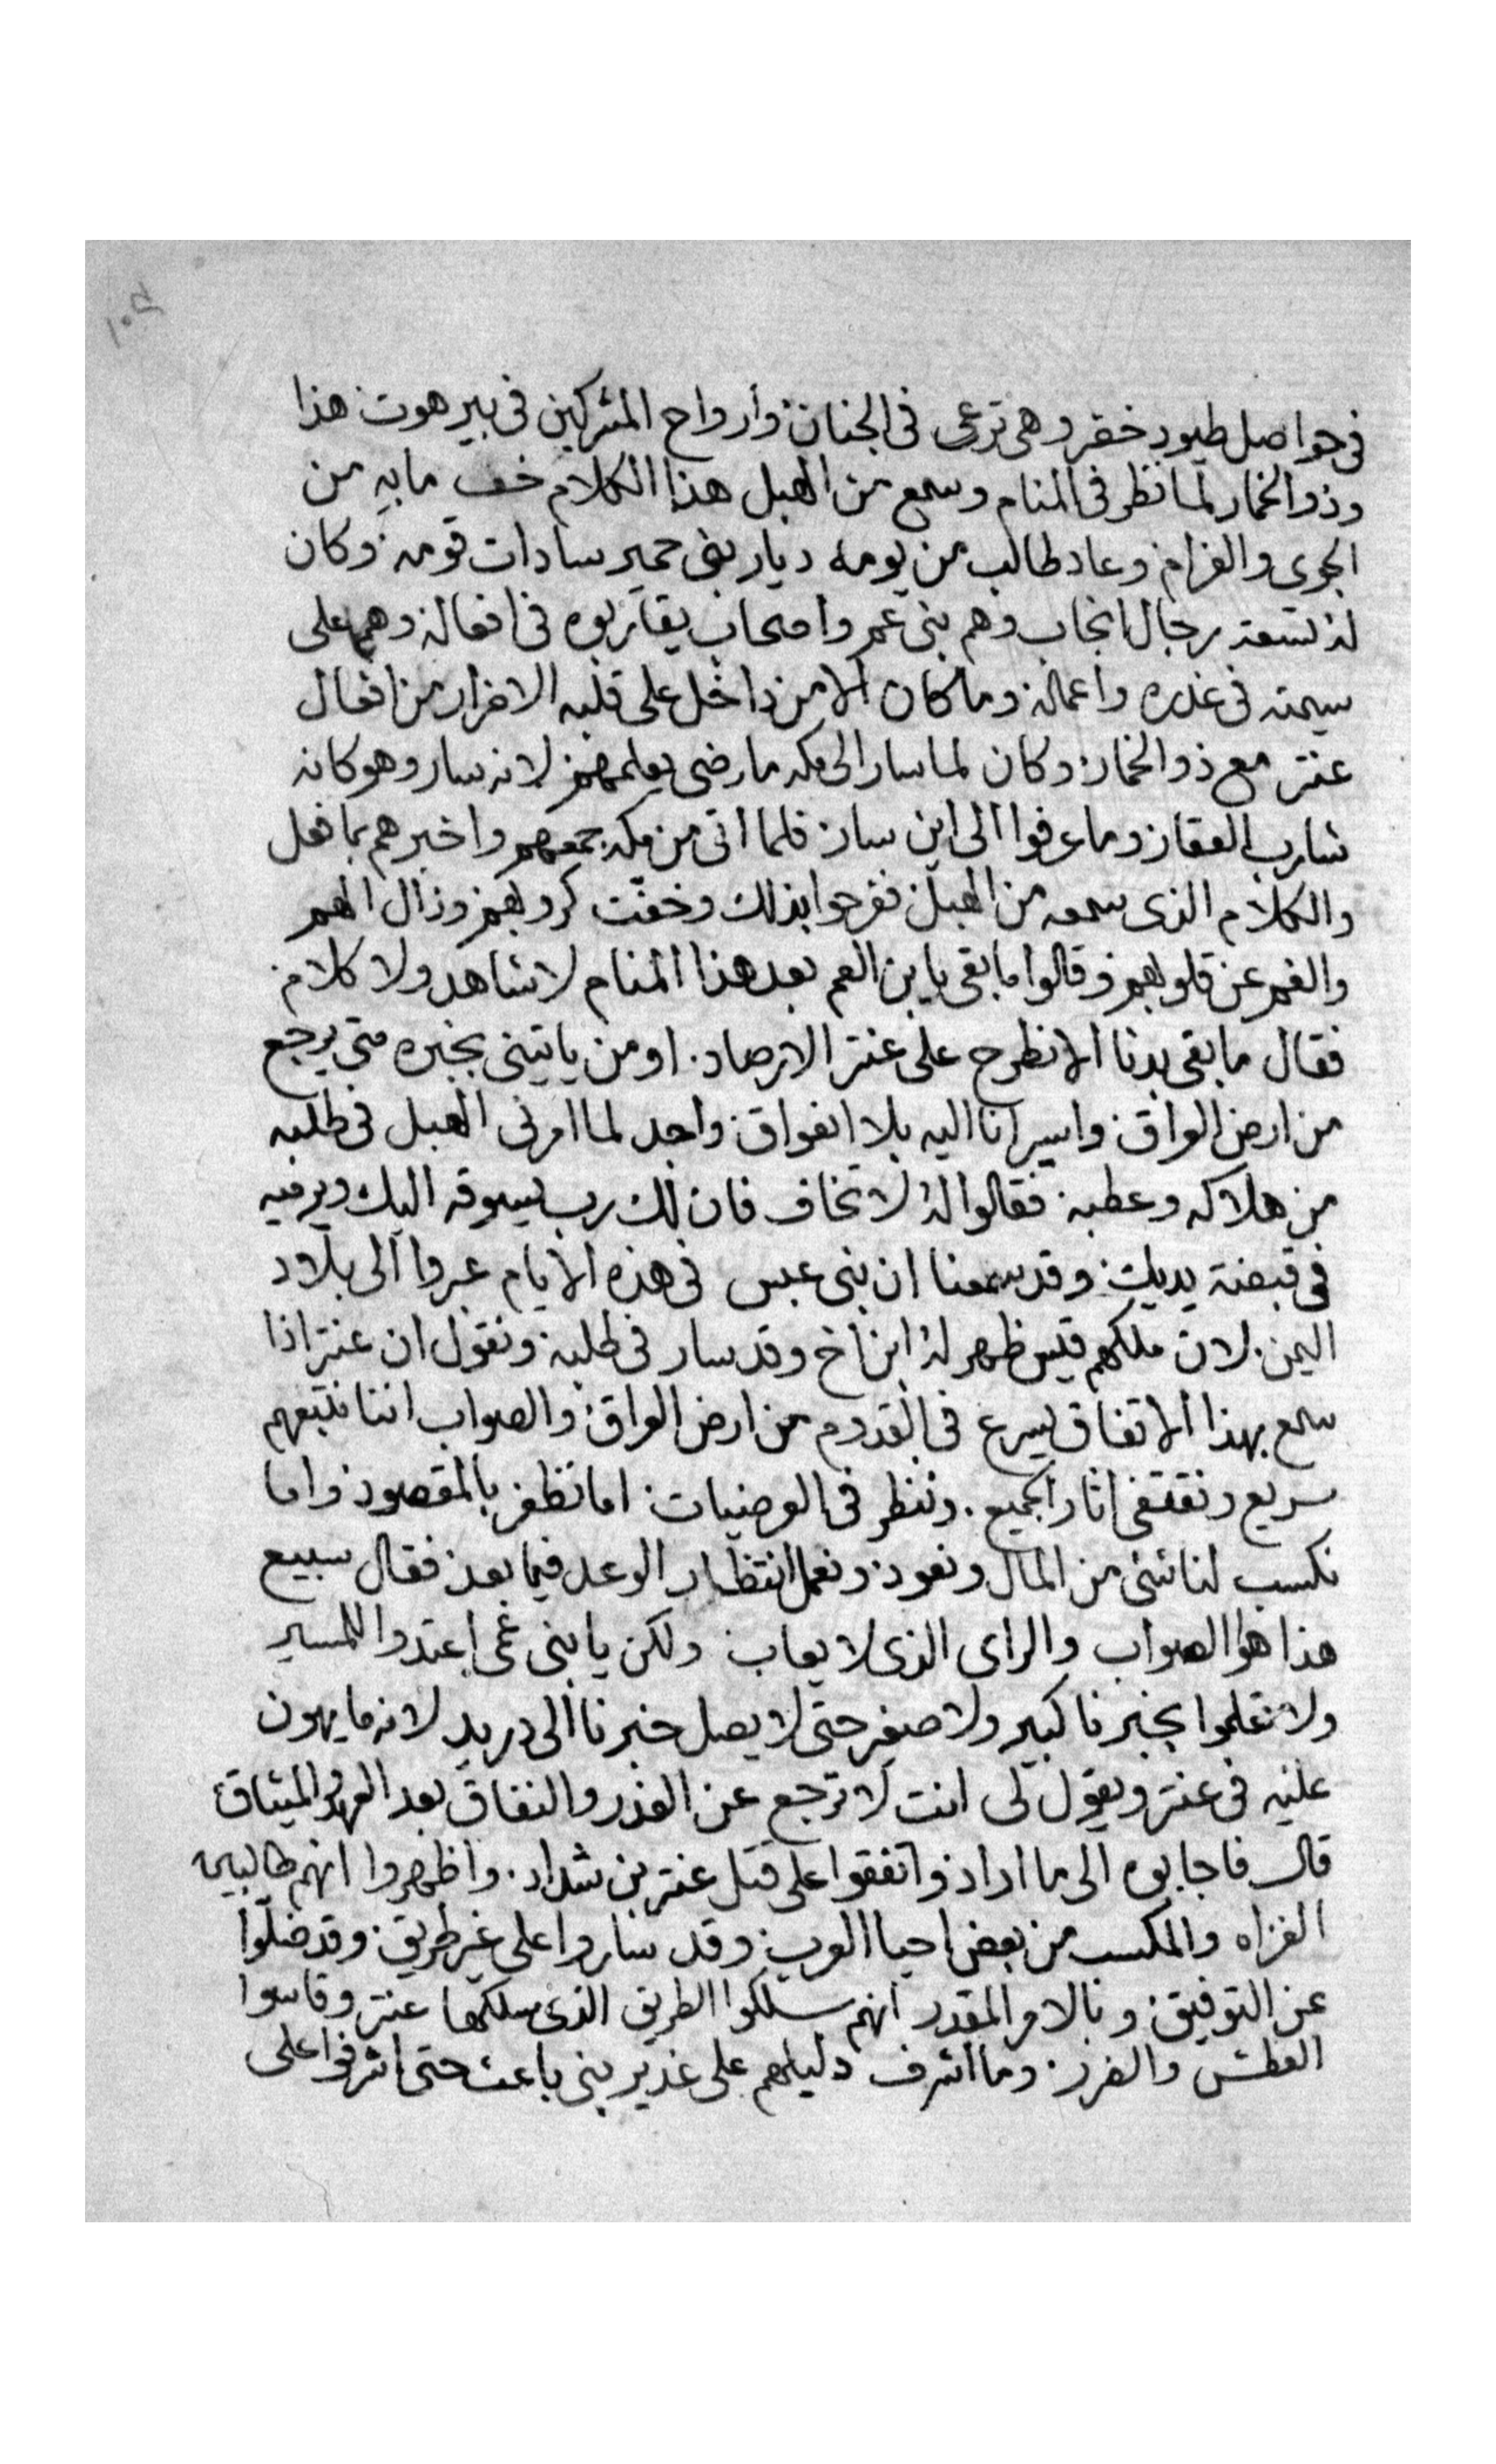 ١٠٥
فى حواصل طيور خضر وهى ترعى فى الجنان وأرواح المشركين فى بير هوت هذا
وذو الخمار لما نظر فى المنام وسمع من الهبل هذا الكلام خف ما به من
الجوى والغرام وعاد طالب من يومه ديار بنى حمير سادات قومه وكان
له تسعة رجال انجاب وهم بنى عمر واصحاب يقاربوه فى افعاله وهم على
سيمته فى غدره واعماله وما كان الا من داخل على قلبه الاضرار من افعال
عنتر مع ذو الخمار وكان لما سار الى مكه ما رضى يعلمهم لانه سار وهو كانه
شارب العقار وما عرفوا الى اين سار فلما اتى من مكه جمعهم واخبرهم بما فعل
والكلام الذى سمعه من الهبل ففرحوا بذلك وخفت كروبهم وزال الهم
والغم عن قلوبهم وقالوا ما بقى يا بن العم بعد هذا المنام لا شاهد ولا كلام
فقال ما بقى بدنا الا نطرح على عنتر الارصاد او من ياتينى بخبره متى يرجع
من ارض العراق واسير انا اليه بلا انفواق واجد لما امرنى الهبل فى طلبه
من هلاكه وعطبه فقالوا له لا تخاف فان لك رب يسوقه اليك ويرميه
فى قبضة يديك وقد سمعنا ان بنى عبس فى هذه الايام عبروا الى بلاد
اليمن لان ملكهم قيس ظهر له ابن اخ وقد سار فى طلبه ونقول ان عنتر اذا
سمع بهذا الاتفاق يسرع فى القدوم من ارض العراق والصواب اننا نتبعهم
سريع ونقتفى اثار الجميع وننظر فى العرضيات اما نظفر بالمقصود واما
نكسب لنا شئ من المال ونعود ونعمل انتظار الوعد فيما بعد فقال سبيع
هذا هو الصواب والراى الذى لا يعاب ولكن يا بنى عمى اعتدوا للمسير
ولا تعلموا بخبرنا كبير ولا صغير حتى لا يصل خبرنا الى دريد لانه ما يهون
عليه فى عنتر ويقول لى انت لا ترجع عن الغدر والنفاق بعد العهد والميثاق
قال فاجابوه الى ما اراد واتفقوا على قتل عنتر بن شداد واظهروا انهم طالبين
الغزاه والمكسب من بعض احيا العرب وقد ساروا على غير طريق وقد ضلوا
عن التوفيق وبالامر المقدر انهم سلكوا الطريق الذى سلكها عنتر وقاسوا
العطش والضرر وما اشرف دليلهم على غدير بنى باعث حتى اشرفوا على